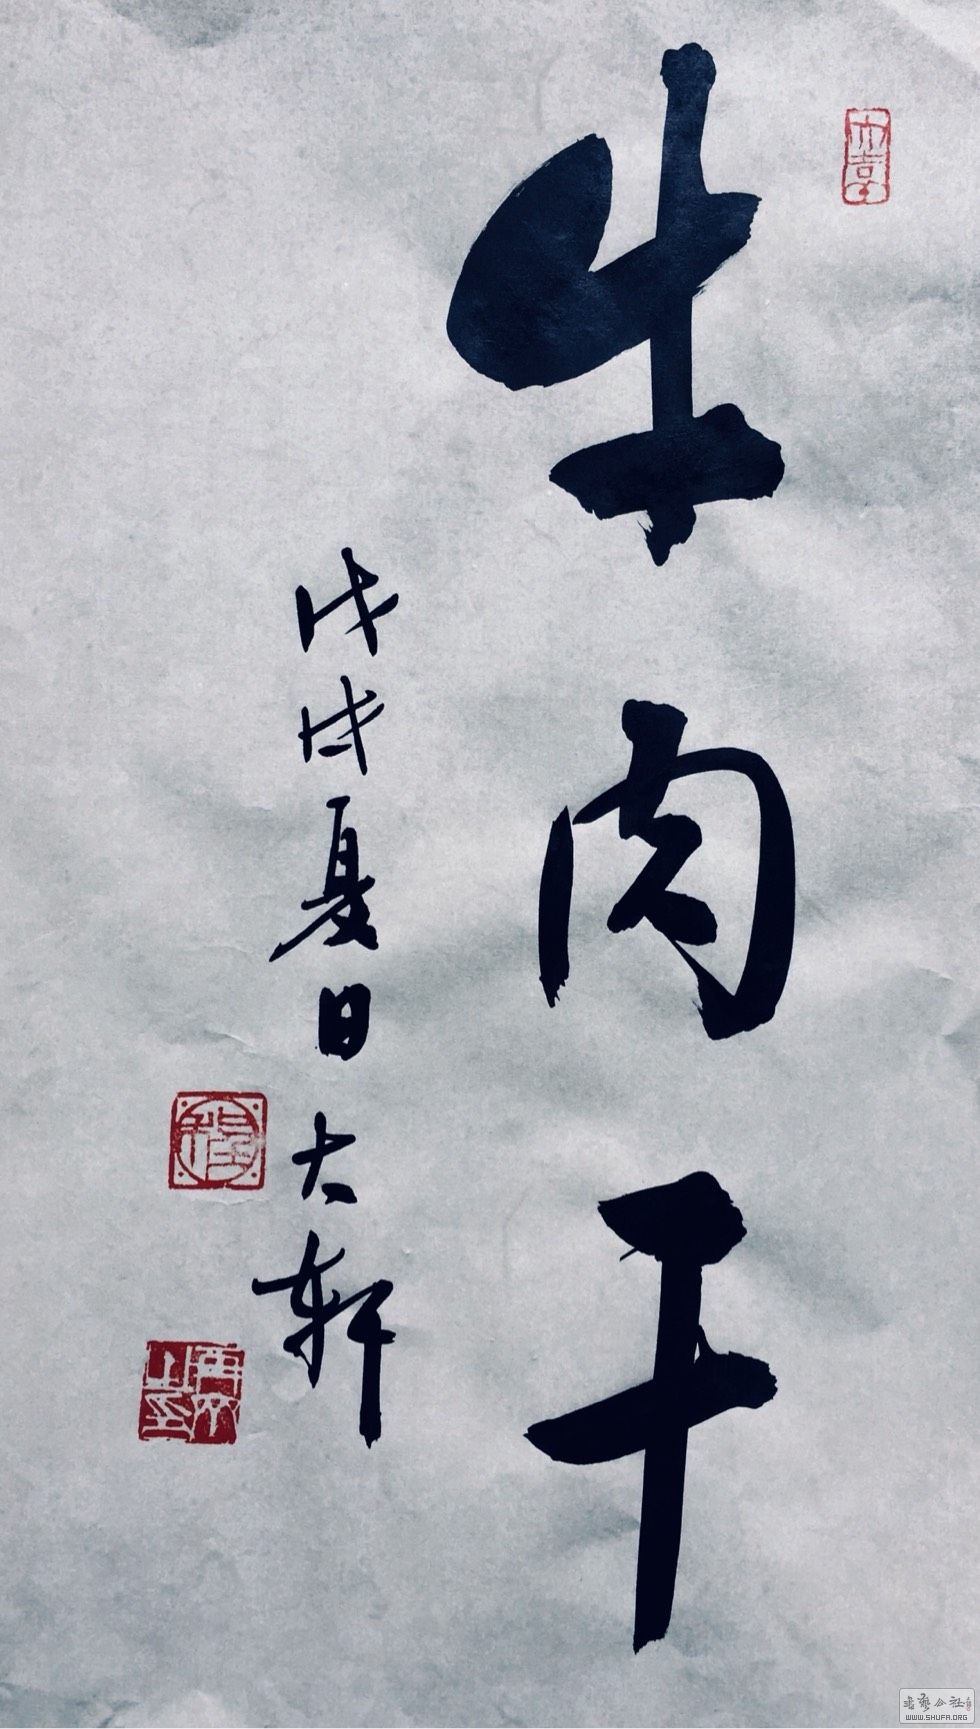 牛肉干
戊戌夏日大轩
WWW.SHUFA.ORG